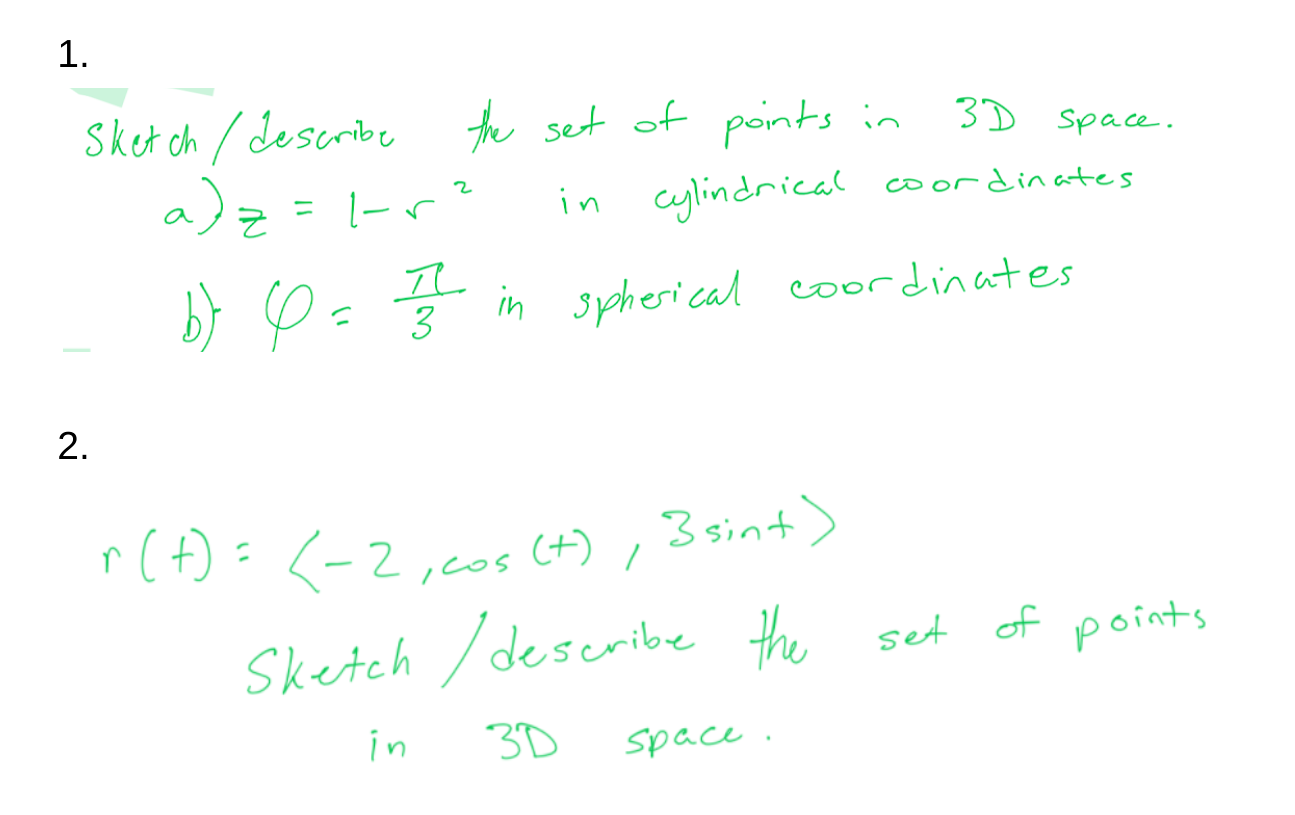 1.
Sketch/describe the set of points in 3D space.
a) z = 1-r² in cylindrical coordinates
b) φ = π/3 in spherical coordinates
2.
r(t) = ⟨-2, cos(t), 3sint⟩
Sketch/describe the set of points
in 3D space.